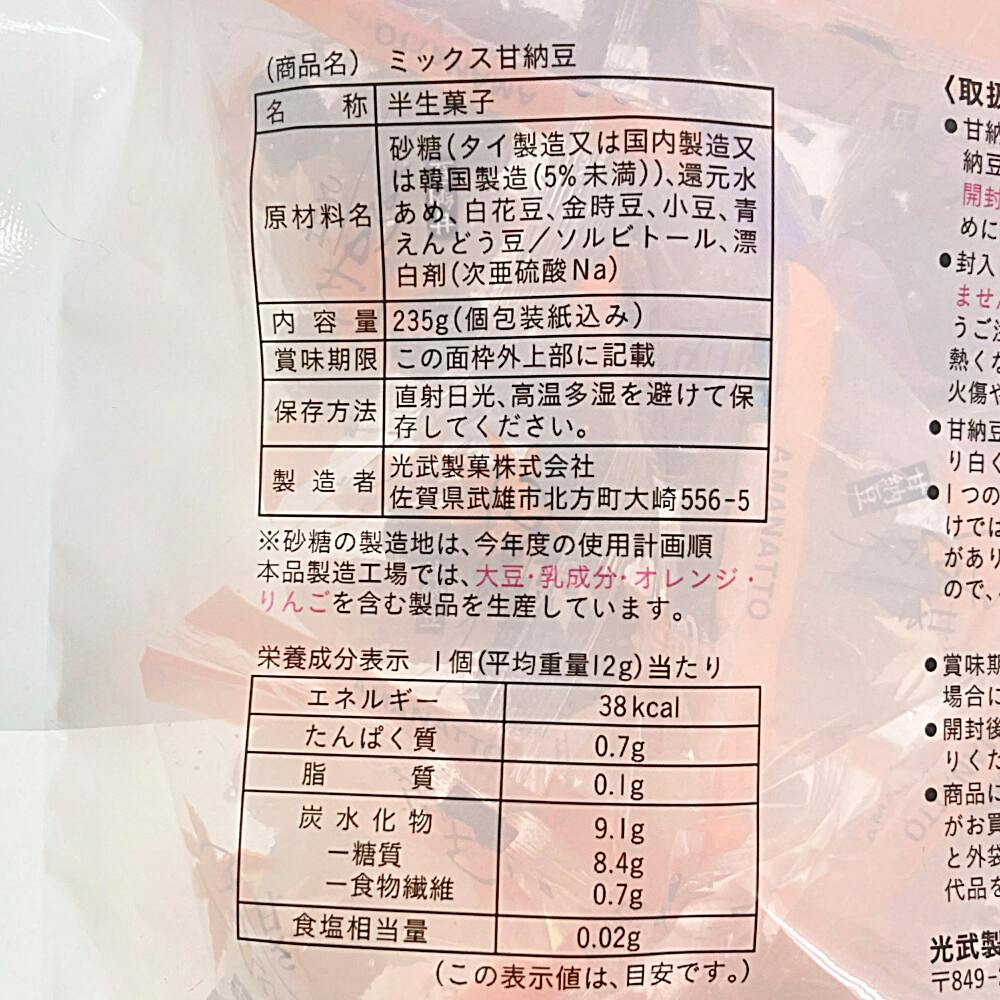 (商品名) ミックス甘納豆
名 称 半生菓子
原材料名 砂糖(タイ製造又は国内製造又
は韓国製造(5%未満))、還元水
あめ、白花豆、金時豆、小豆、青
えんどう豆/ソルビトール、漂
白剤(次亜硫酸Na)
内容量 235g(個包装紙込み)
賞味期限 この面枠外上部に記載
保存方法 直射日光、高温多湿を避けて保
存してください。
製造者 光武製菓株式会社
佐賀県武雄市北方町大崎556-5
※砂糖の製造地は、今年度の使用計画順
本品製造工場では、大豆・乳成分・オレンジ・
りんごを含む製品を生産しています。
栄養成分表示 1個(平均重量12g)当たり
エネルギー 38kcal
たんぱく質 0.7g
脂質 0.1g
炭水化物 9.1g
ー糖質 8.4g
ー食物繊維 0.7g
食塩相当量 0.02g
(この表示値は、目安です。)
〈取扱
●甘納
納豆
開封
めに
●封入
ませ
うご注
熱くな
火傷や
●甘納豆
り白く
●1つの
けでは
があり
ので、
●賞味期
場合に
●開封後
りくた
●商品に
がお買
と外袋
代品を
光武製
〒849-
AMANATTO
甘納豆